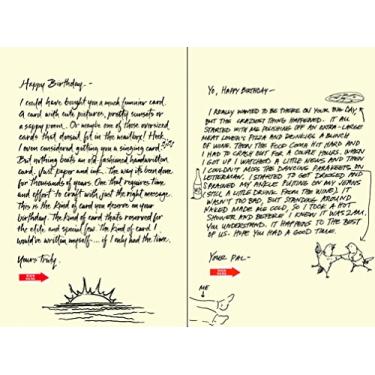 Happy Birthday -
I could have bought you a much funnier card.
A card with cute pictures, pretty sunsets or
a sappy poem. Or maybe one of those oversized
cards that doesn't fit in the mailbox! Heck,
I even considered getting you a singing card.
But nothing beats an old-fashioned handwritten
card. Just paper and ink. The way it's been done
for thousands of years. One that requires time
and effort to craft with just, the right message.
This is the kind of card you deserve on your
birthday. The kind of card that's reserved for
the elite and special few. The kind of card I
would've written myself... if I only had the time.
Yours Truly,
Yo, Happy Birthday -
I really wanted to be there on your big day,
but the craziest thing happened. It all
started with me polishing off an extra-large
meat lover's pizza and drinking a bunch
of wine. Then the food coma hit hard and
I had to crash out for a couple hours. When I
got up I watched a little Jenga and then I
couldn't miss the dancing parakeets on
Letterman. I started to get dressed and
sprained my ankle putting on my jeans
(still a little drunk from the wine). It
wasn't too bad, but standing around
naked made me cold, so I took a hot
shower and before I knew it was 2am.
You understand. It happens to the best
of us. Hope you had a good time.
Your Pal -
ME